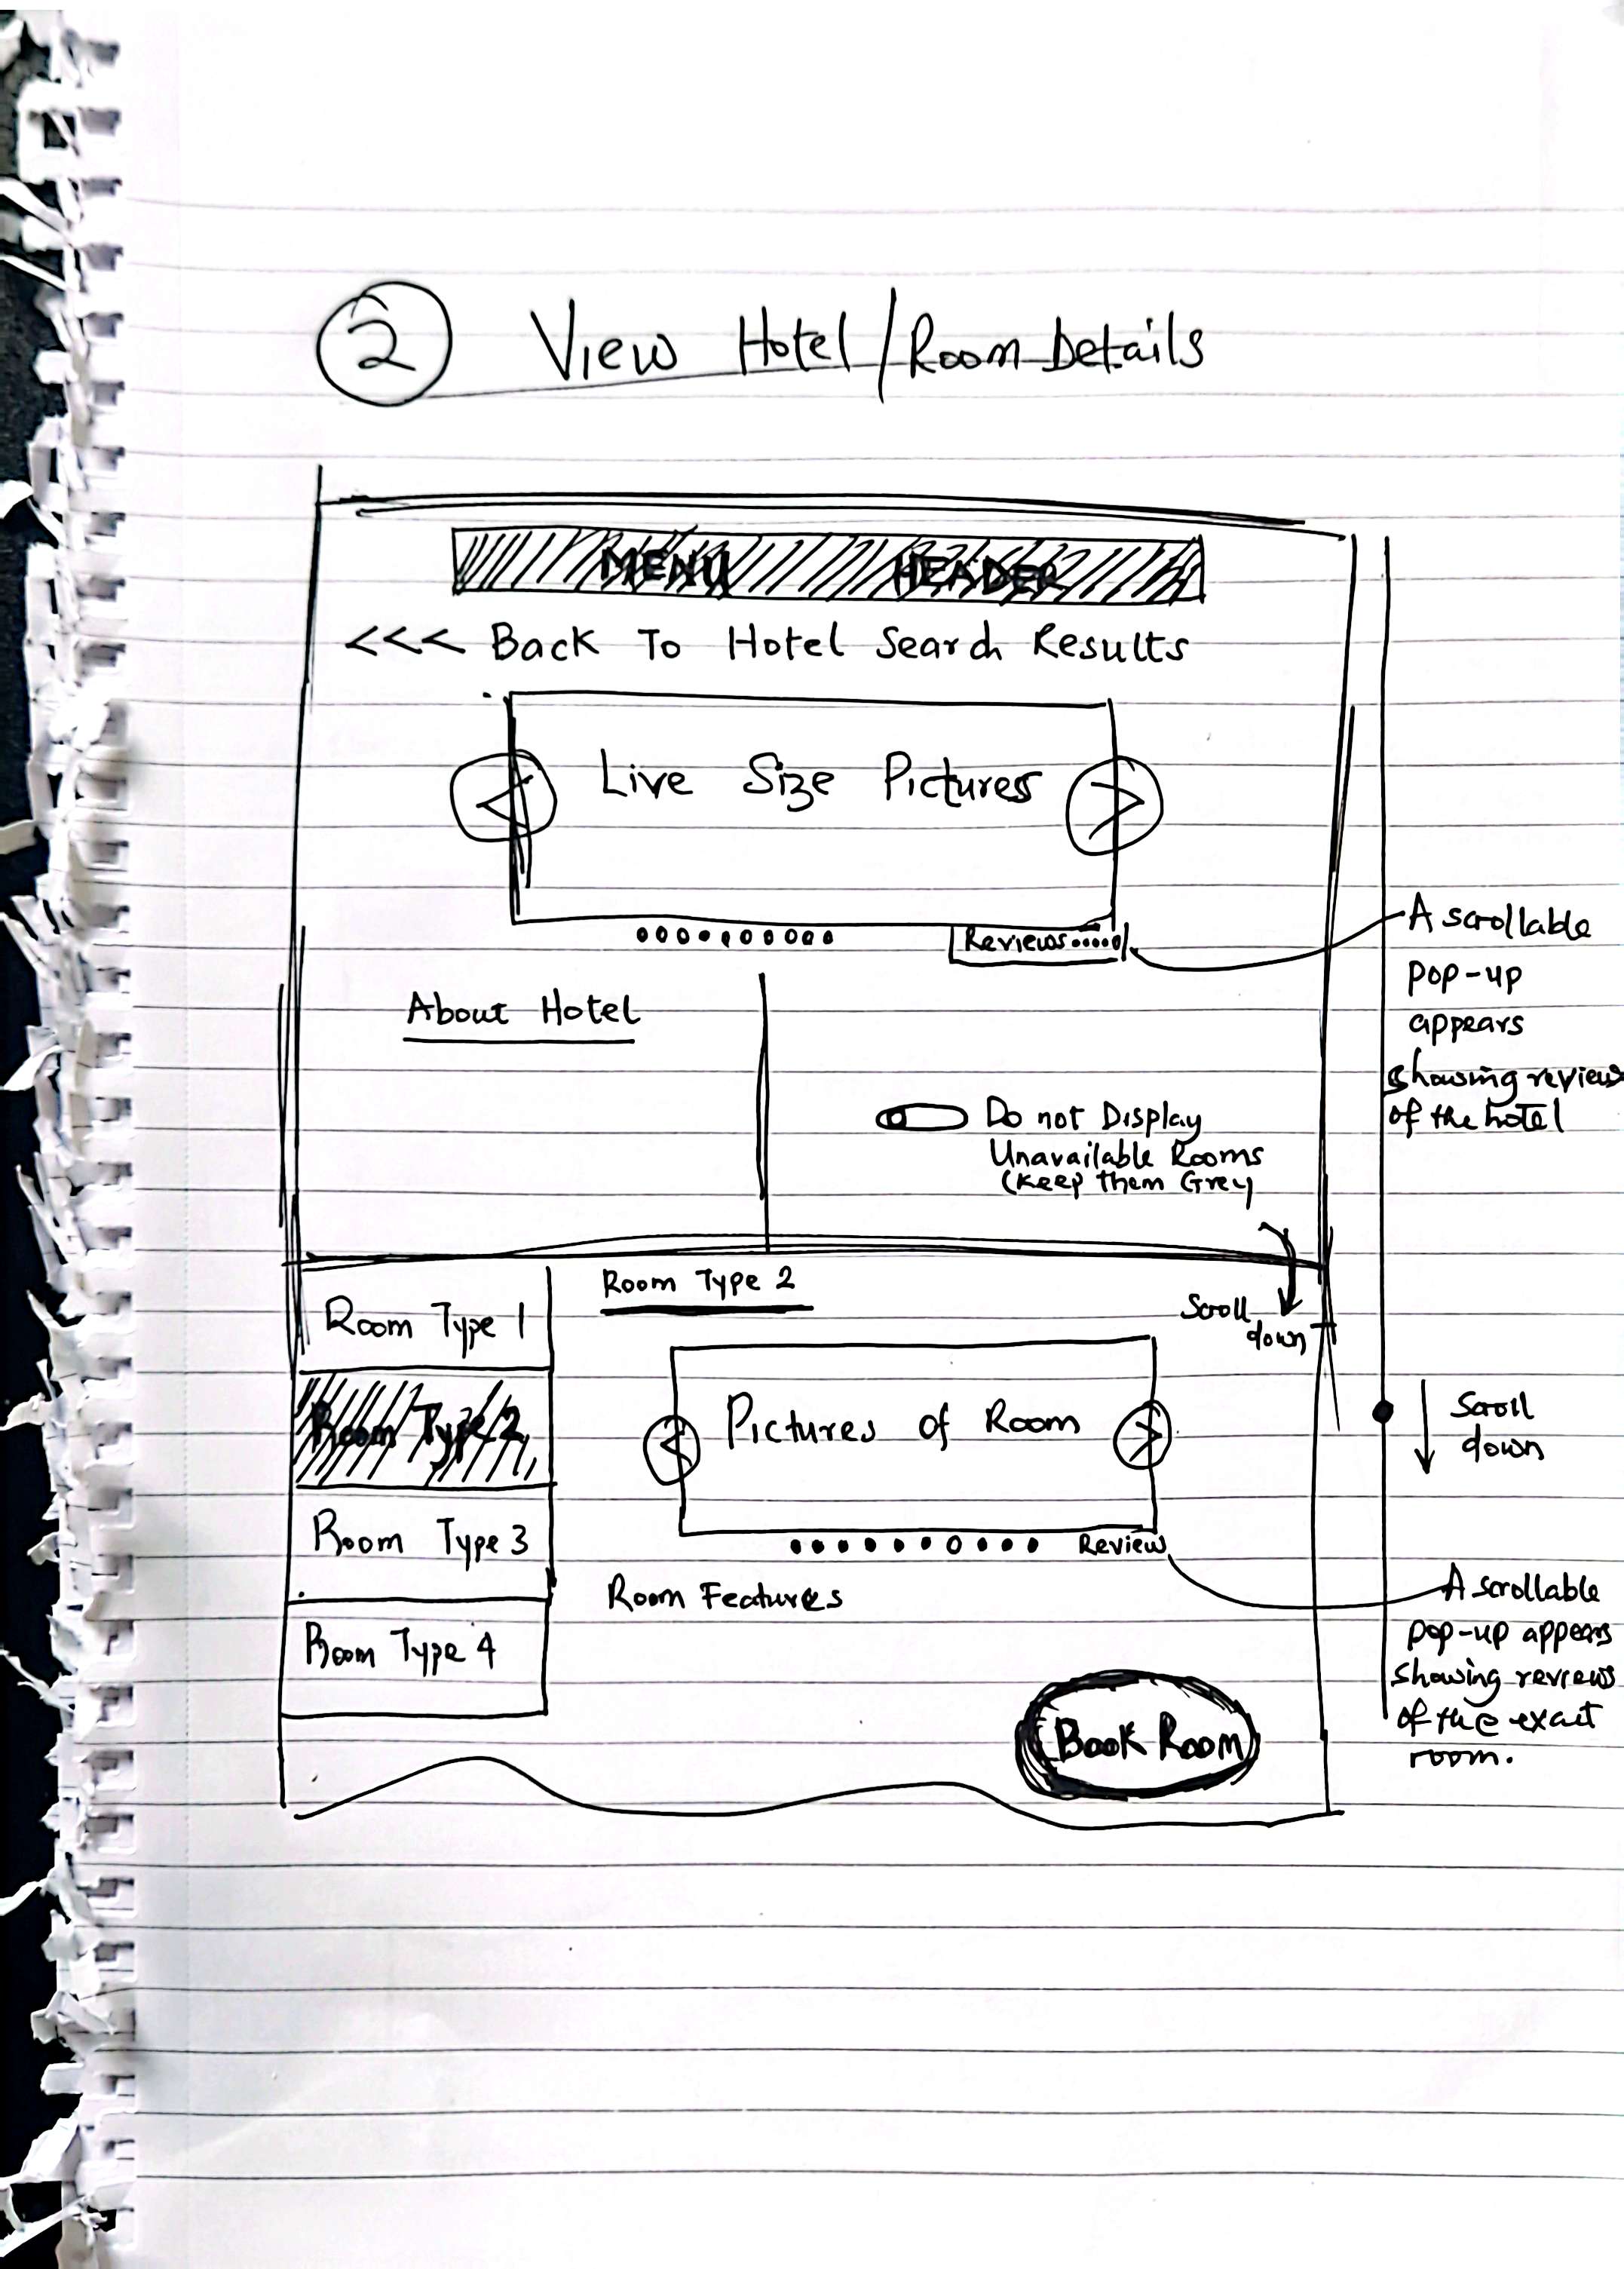 2 View Hotel/Room Details
MENU HEADER
<<< Back To Hotel Search Results
< Live Size Pictures >
Reviews.....
A scrollable
pop-up
appears
showing reviews
of the hotel
About Hotel
Do not Display
Unavailable Rooms
(Keep them Grey
Scroll
down
Room Type 1
Room Type 2
Room Type 3
Room Type 4
Room Type 2
< Pictures of Room >
Review
Scroll
down
Room Features
A scrollable
pop-up appears
showing reviews
of the exact
room.
Book Room